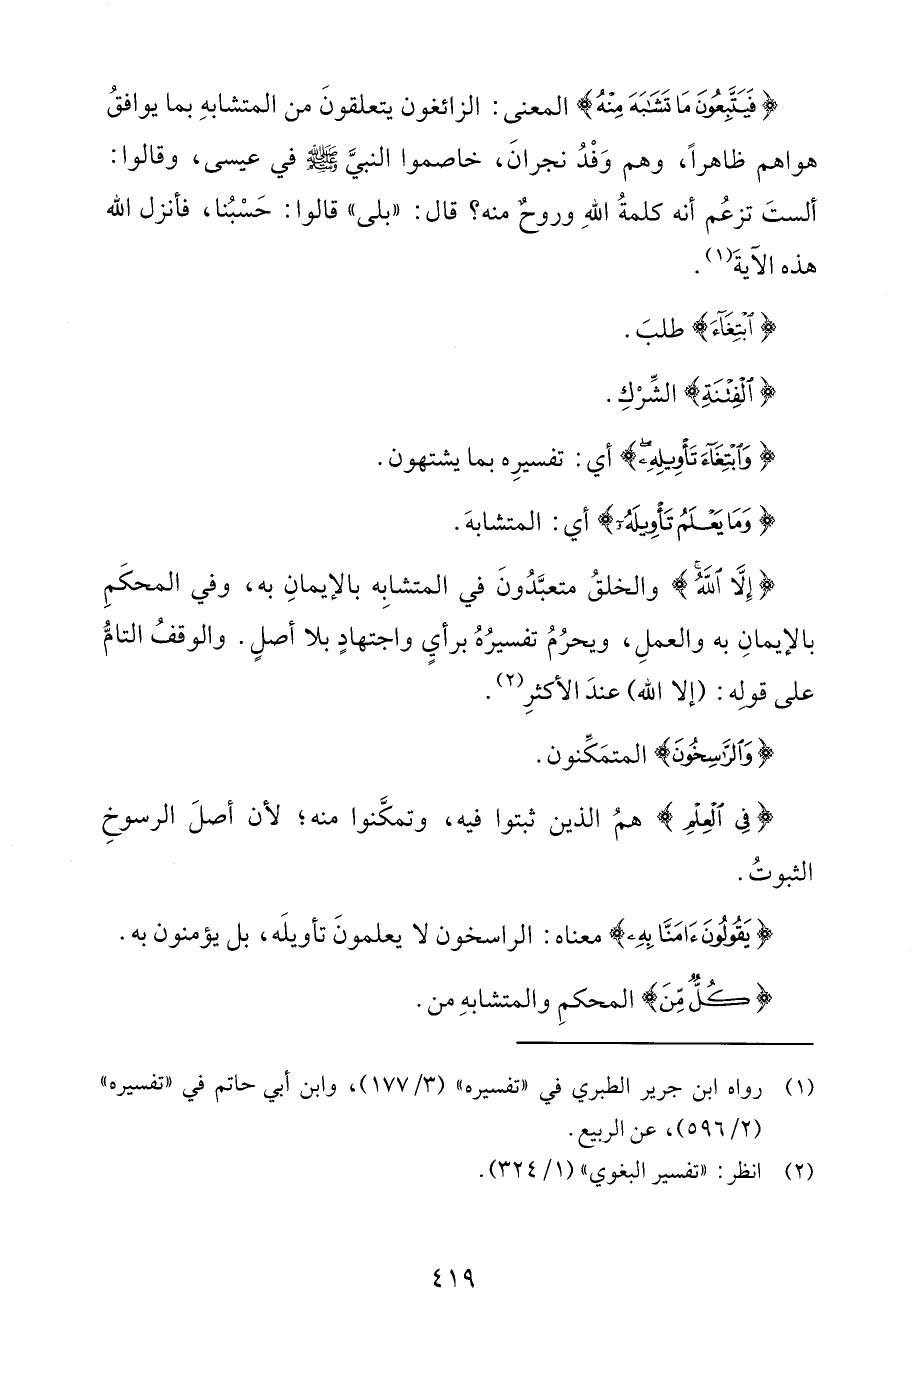 ﴿فَيَتَّبِعُونَ مَا تَشَٰبَهَ مِنْهُ﴾ المعنى: الزائغون يتعلقونَ من المتشابهِ بما يوافقُ
هواهم ظاهراً، وهم وَفْدُ نجرانَ، خاصموا النبيَّ ﷺ في عيسى، وقالوا:
ألستَ تزعُم أنه كلمةُ اللهِ وروحٌ منه؟ قال: «بلى» قالوا: حَسْبُنا، فأنزل الله
هذه الآيةَ(١).
﴿ٱبْتِغَآءَ﴾ طلبَ.
﴿ٱلْفِتْنَةِ﴾ الشِّرْكِ.
﴿وَٱبْتِغَآءَ تَأْوِيلِهِۦۖ﴾ أي: تفسيرِه بما يشتهون.
﴿وَمَا يَعْلَمُ تَأْوِيلَهُۥٓ﴾ أي: المتشابهَ.
﴿إِلَّا ٱللَّهُۗ﴾ والخلقُ متعبَّدُونَ في المتشابِه بالإيمانِ به، وفي المحكَمِ
بالإيمانِ به والعملِ، ويحرُمُ تفسيرُهُ برأيٍ واجتهادٍ بلا أصلٍ. والوقفُ التامُّ
على قولِه: (إلا الله) عندَ الأكثرِ(٢).
﴿وَٱلرَّٰسِخُونَ﴾ المتمَكِّنون.
﴿فِى ٱلْعِلْمِ﴾ همُ الذين ثبتوا فيه، وتمكَّنوا منه؛ لأن أصلَ الرسوخِ
الثبوتُ.
﴿يَقُولُونَ ءَامَنَّا بِهِۦ﴾ معناه: الراسخون لا يعلمونَ تأويلَه، بل يؤمنون به.
﴿كُلٌّ مِّنَ﴾ المحكمِ والمتشابهِ من.
(١) رواه ابن جرير الطبري في «تفسيره» (٣/ ١٧٧)، وابن أبي حاتم في «تفسيره»
(٢/ ٥٩٦)، عن الربيع.
(٢) انظر: «تفسير البغوي» (١/ ٣٢٤).
٤١٩